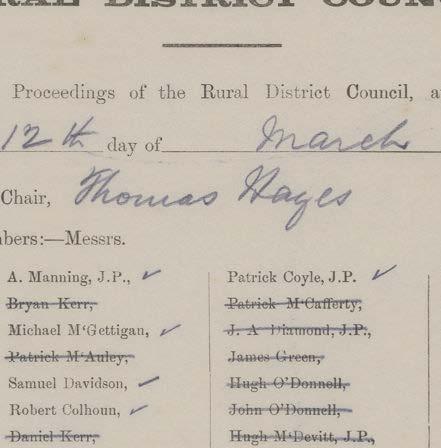 RAL DISTRICT COUN
Proceedings of the Rural District Council, a
12th day of March
Chair, Thomas Hayes
bers:—Messrs.
A. Manning, J.P., ✓
Bryan Kerr,
Michael M'Gettigan, ✓
Patrick M'Auley,
Samuel Davidson, ✓
Robert Colhoun, ✓
Daniel Kerr,
Patrick Coyle, J.P. ✓
Patrick M'Cafferty,
J. A Diamond, J.P.,
James Green,
Hugh O'Donnell,
John O'Donnell,
Hugh M'Devitt, J.P.,